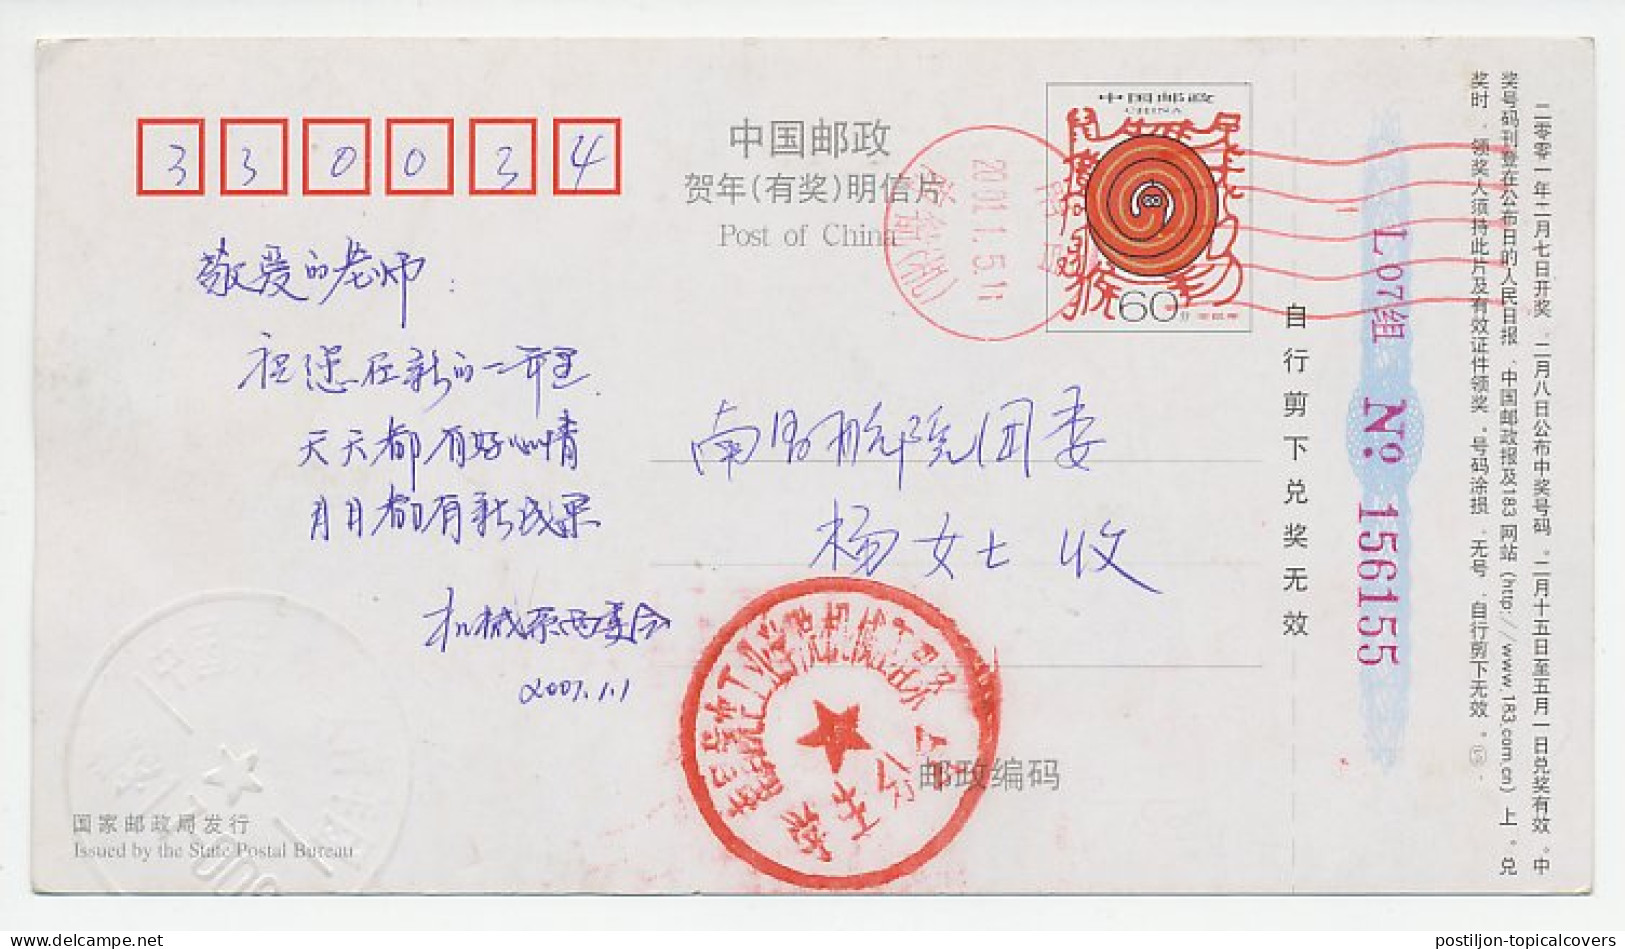 330034
中国邮政
贺年(有奖)明信片
Post of China
中国邮政
CHINA
60分
2001.1.5.11
敬爱的老师：
祝您在新的一年里
天天都有好心情
月月都有新成果
机械系团委会
2001.1.1
南昌航院团委
杨女士 收
学生分
邮政编码
国家邮政局发行
Issued by the State Postal Bureau
自行剪下兑奖无效
L07组
№ 156155
二零零一年二月七日开奖．二月八日公布中奖号码．二月十五日至五月一日兑奖有效．中
奖号码刊登在公布日的人民日报、中国邮政报及183网站(http://www.183.com.cn)上．兑
奖时．领奖人须持此片及有效证件领奖．号码涂损．无号．自行剪下无效．⑤
postiljon-topicalcovers